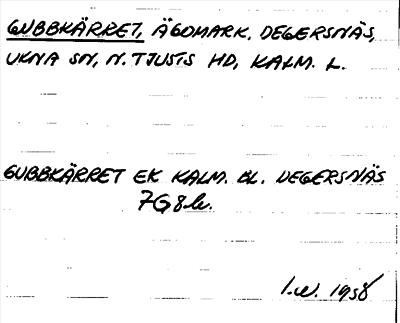 GUBBKÄRRET, ÄGOMARK, DEGERSNÄS,
UKNA SN, N. TJUSTS HD, KALM. L.
GUBBKÄRRET EK KALM. BL. DEGERSNÄS
7G8b.
I.W. 1958